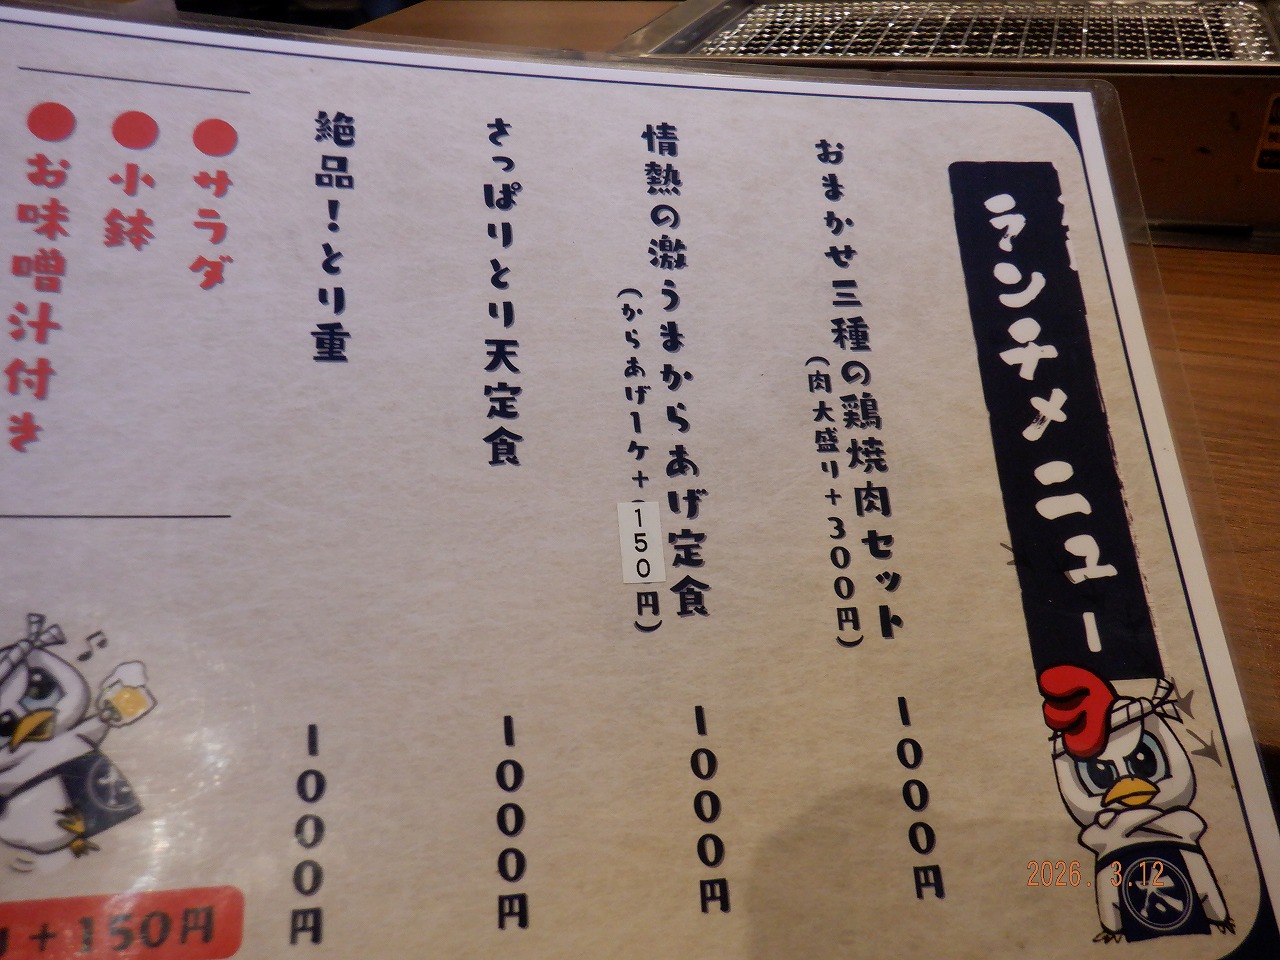 ランチメニュー
おまかせ三種の鶏焼肉セット 1000円
(肉大盛り+300円)
情熱の激うまからあげ定食 1000円
(からあげ1ケ+150円)
さっぱりとり天定食 1000円
絶品!とり重 1000円
●サラダ
●小鉢
●お味噌汁付き
+150円
2026. 3.12